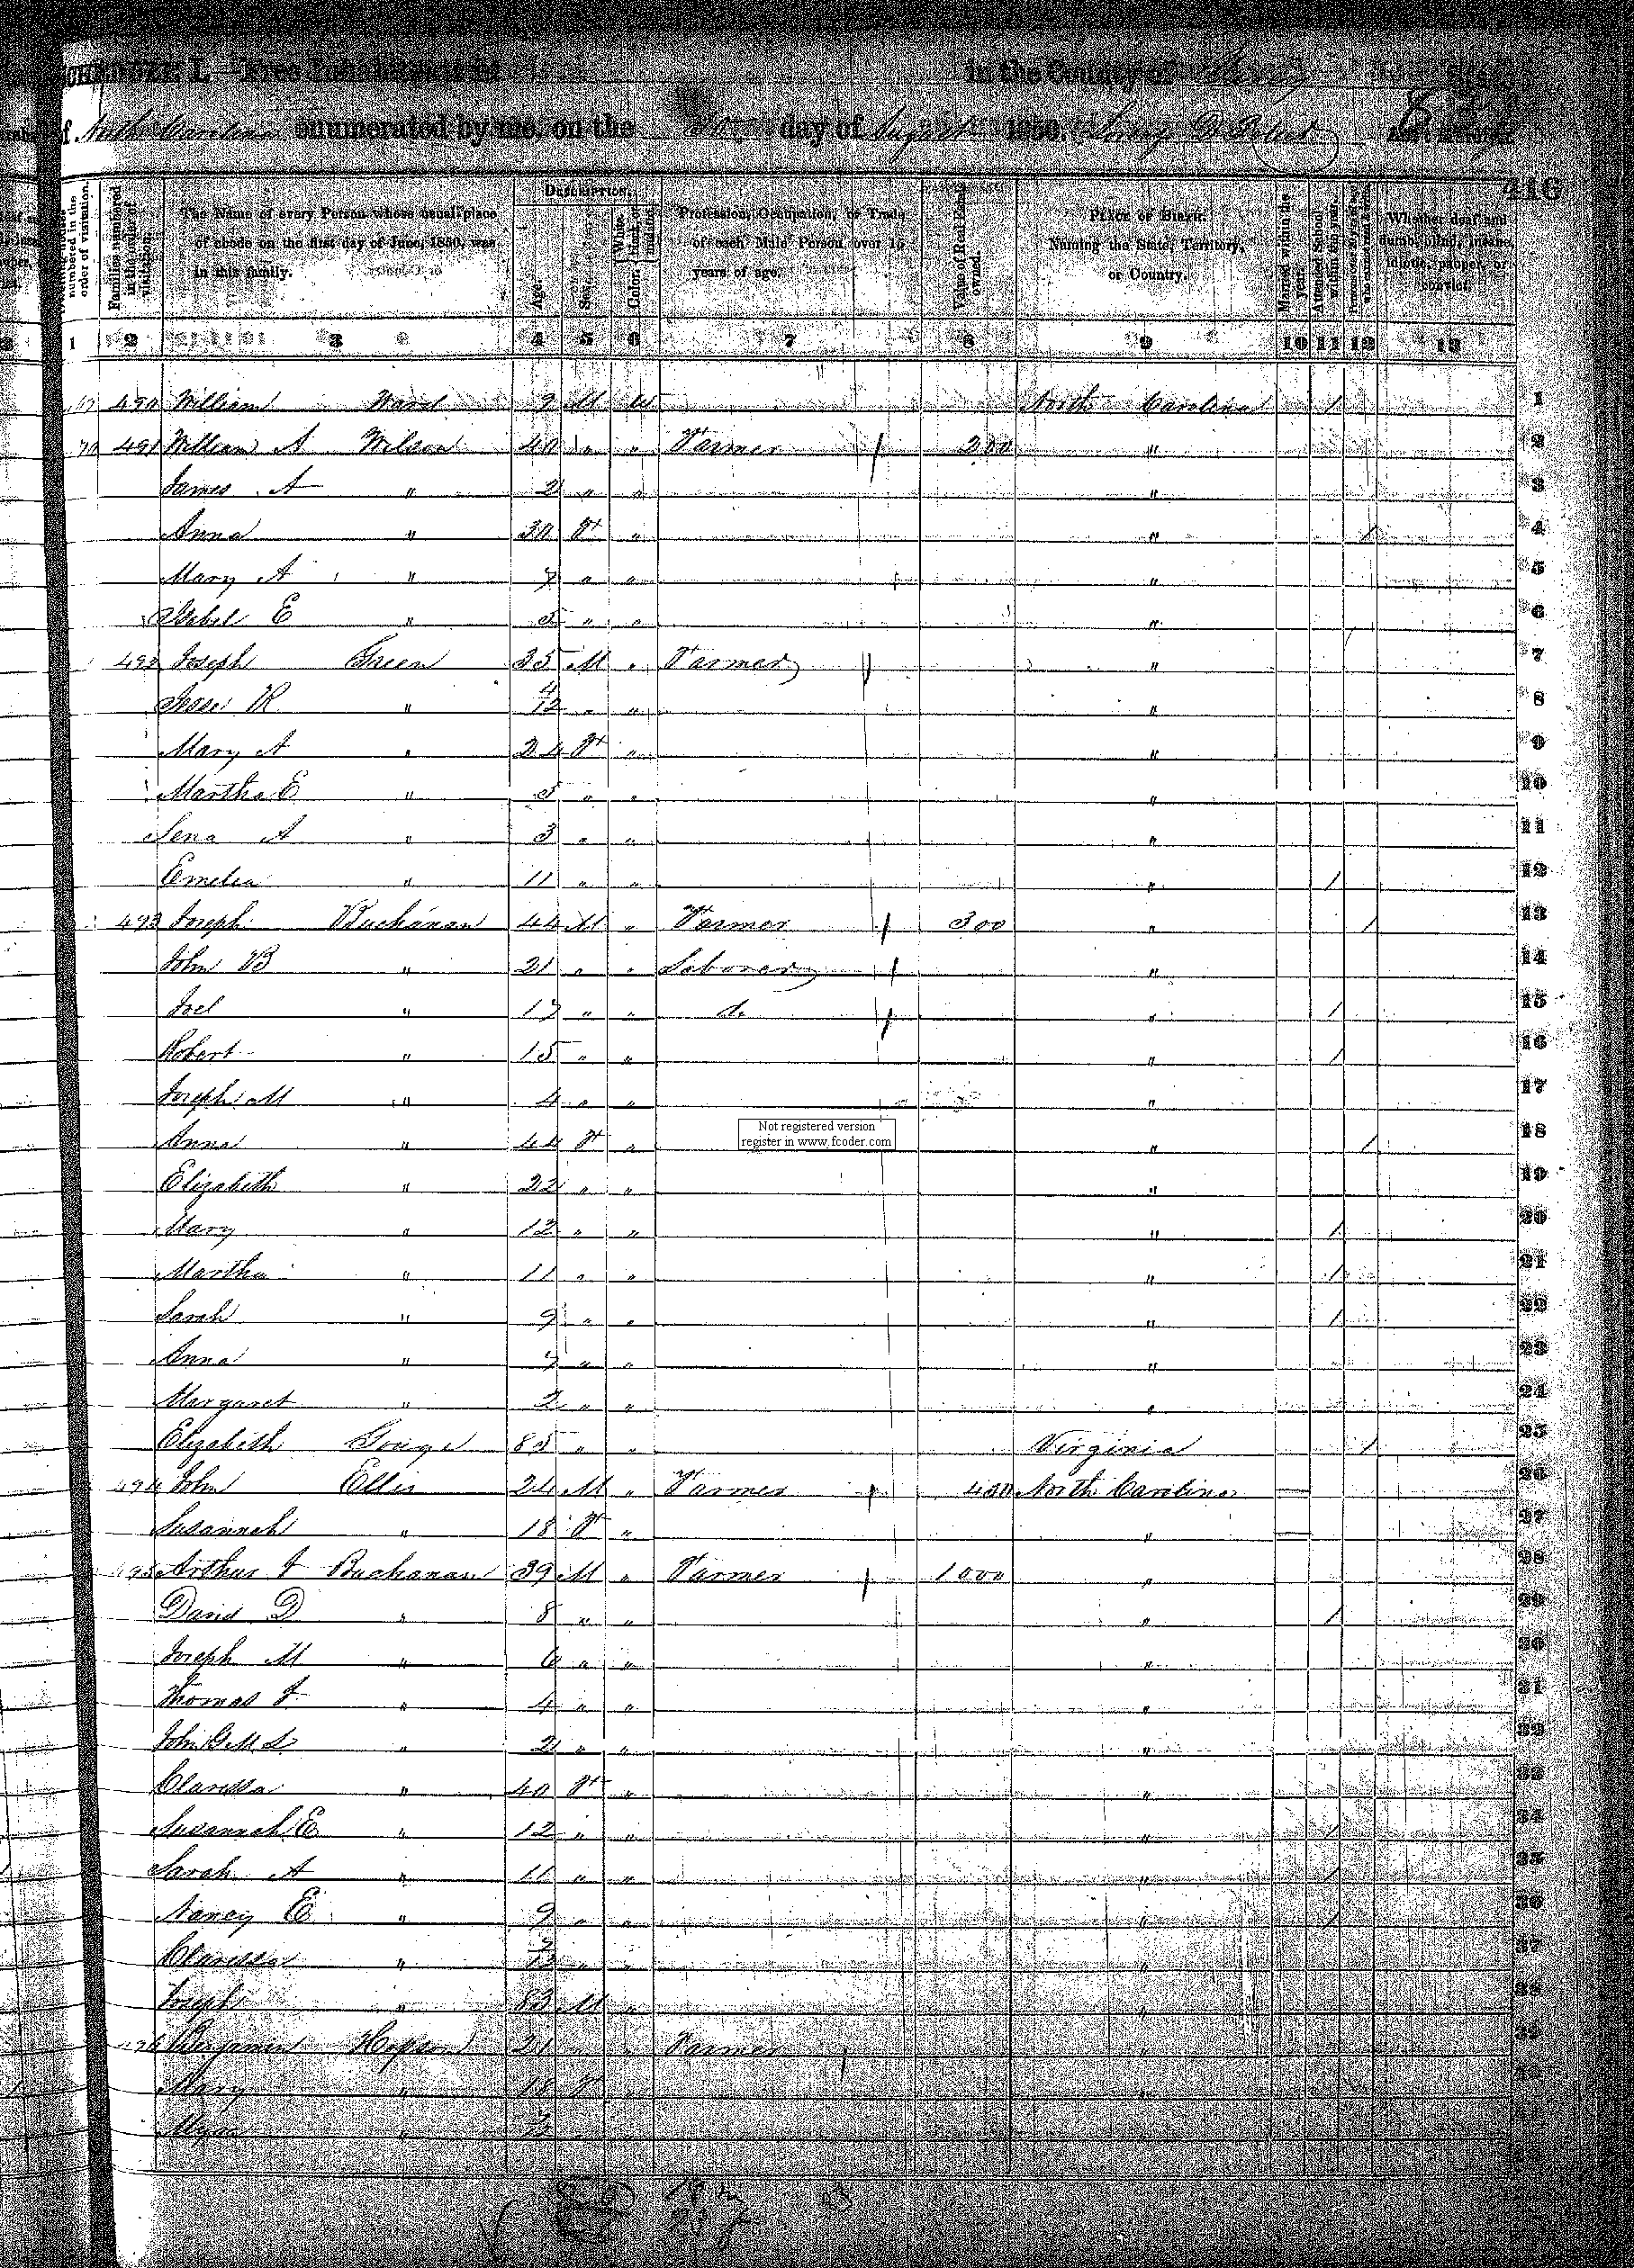 SCHEDULE I.—Free Inhabitants in in the County of
of North Carolina enumerated by me, on the day of August 1850.
416
DESCRIPTION.
numbered in the order of visitation.
Families numbered in the order of visitation.
The Name of every Person whose usual place of abode on the first day of June, 1850, was in this family.
Age.
Sex.
Color, White, black, or mulatto.
Profession, Occupation, or Trade of each Male Person over 15 years of age.
Value of Real Estate owned.
Place of Birth, Naming the State, Territory, or Country.
Married within the year.
Attended School within the year.
Whether deaf and dumb, blind, insane, idiotic, pauper, or convict.
1 2 3 4 5 6 7 8 9 10 11 12 13
490 William Ward 9 M W North Carolina 1 1
491 William A Wilson 40 " " Farmer 200 " 2
James A " 2 " " " 3
Anna " 30 F " " 1 4
Mary A " 7 " " " 5
Isabel E " 5 " " " 6
492 Joseph Green 35 M " Farmer " 7
Jesse R " 4/12 " " " 8
Mary A " 24 F " " 9
Martha E " 5 " " " 10
Sena A " 3 " " " 11
Emelia " 11 " " " 1 12
493 Joseph Buchanan 44 M " Farmer 300 " 1 13
John B " 21 " " Laborer " 14
Joel " 17 " " do " 1 15
Robert " 15 " " " 1 16
Joseph M " 4 " " " 17
Not registered version
register in www.fcoder.com
Anna " 44 F " " 1 18
Elizabeth " 22 " " " 19
Mary " 12 " " " 1 20
Martha " 11 " " " 1 21
Sarah " 9 " " " 1 22
Anna " 7 " " " 23
Margaret " 2 " " " 24
Elizabeth Gouge 85 " " Virginia 1 25
494 John Ellis 24 M " Farmer 400 North Carolina 26
Susannah " 18 F " " 27
495 Arthur Buchanan 39 M " Farmer 1000 " 28
David D " 8 " " " 1 29
Joseph M " 6 " " " 30
Thomas " 4 " " " 31
John G M L " 2 " " " 32
Clarissa " 40 F " " 33
Susannah E " 12 " " " 1 34
Sarah A " 11 " " " 1 35
Nancy E " 9 " " " 1 36
Clarissa " " " " 37
Joseph " 83 M " " 38
496 Benjamin Hopson 21 " " Farmer " 39
Mary " 18 F " "
"